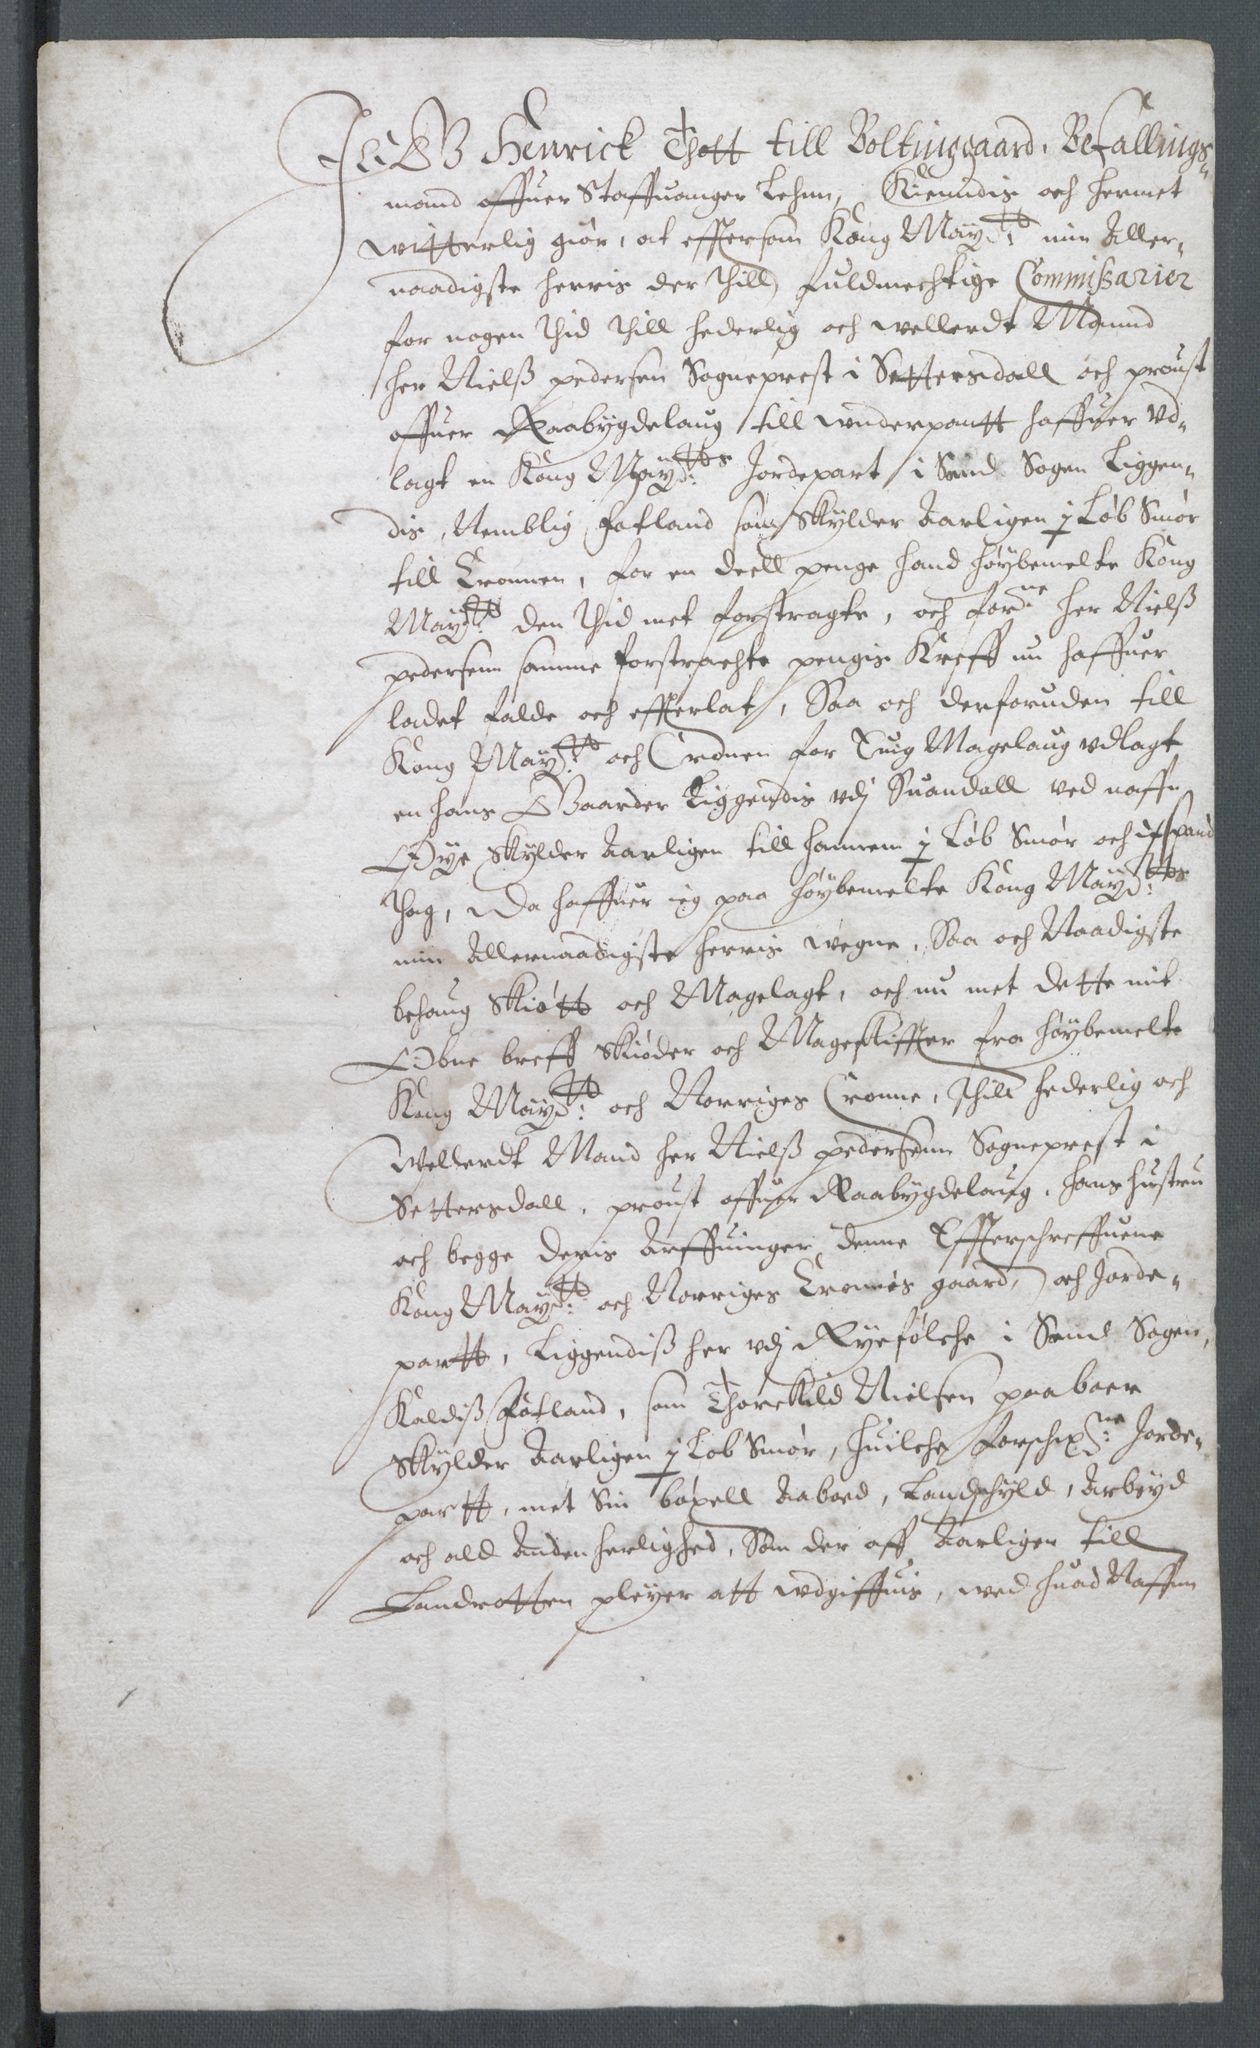 JEG Henrick Thott till Boltinggaard, Befallings-
mand offuer Staffuanger Lehnn, Kiendis och hermet
witterlig giør, at efftersom Kong May:tt min Aller-
naadigste herris der thill fuldmechtige Commissarier
for nogen thid thill hederlig och wellerdt Mannd
her Nielß pedersen Sogneprest i Settersdall och proust
offuer Raabygdelaug till wnderpantt haffuer vd-
lagt en Kong May:tts Jordepart i Sand Sogen Liggen-
dis, Nemblig Fatland som Skylder Aarligen j Løb Smør
till Cronnen, for en deell penge hand høybemelte Kong
May:tt den thid met forstragte, och for:ne her Nielß
pedersenn samme forstrachte pengis Kreff nu haffuer
ladet falde och efferlat, Saa och derforuden till
Kong May:tt och Cronen for Euig Magelaug vdlagt
en hans Gaarder Liggendis vdj Suandall ved naffn
Øye Skylder Aarligen till hannem j Løb Smør och spand
thag, Da haffuer ieg paa høybemelte Kong May:tts
min Allernaadigste herris wegne, Saa och Naadigste
behaug Skiøtt och Magelagt, och nu met dette mit
Obne breff Skiøder och Mageskiffter fra høybemelte
Kong May:tt och Norriges Cronne, thill hederlig och
Wellerdt Mand her Nielß pedersenn Sogneprest i
Settersdall, proust offuer Raabygdelaug, hans hustru
och begge deris Arffuinger, denne Effterschreffuene
Kong May:tt och Norriges Cronnes gaard, och Jorde-
partt, Liggendiß her vdj Ryefølche i Sand Sogen,
Kaldiß Fatland, som Thorckild Nielsen paaboer
Skylder Aarligen j Løb Smør, huilche forsch:ne Jorde-
partt, met Sin bøxell Aaboed, Landschyld, Arbeyd
och ald Anden herlighed, Som der aff Aarligen till
Landrotten pleyer att wdgiffuis, wed huad Naffnn